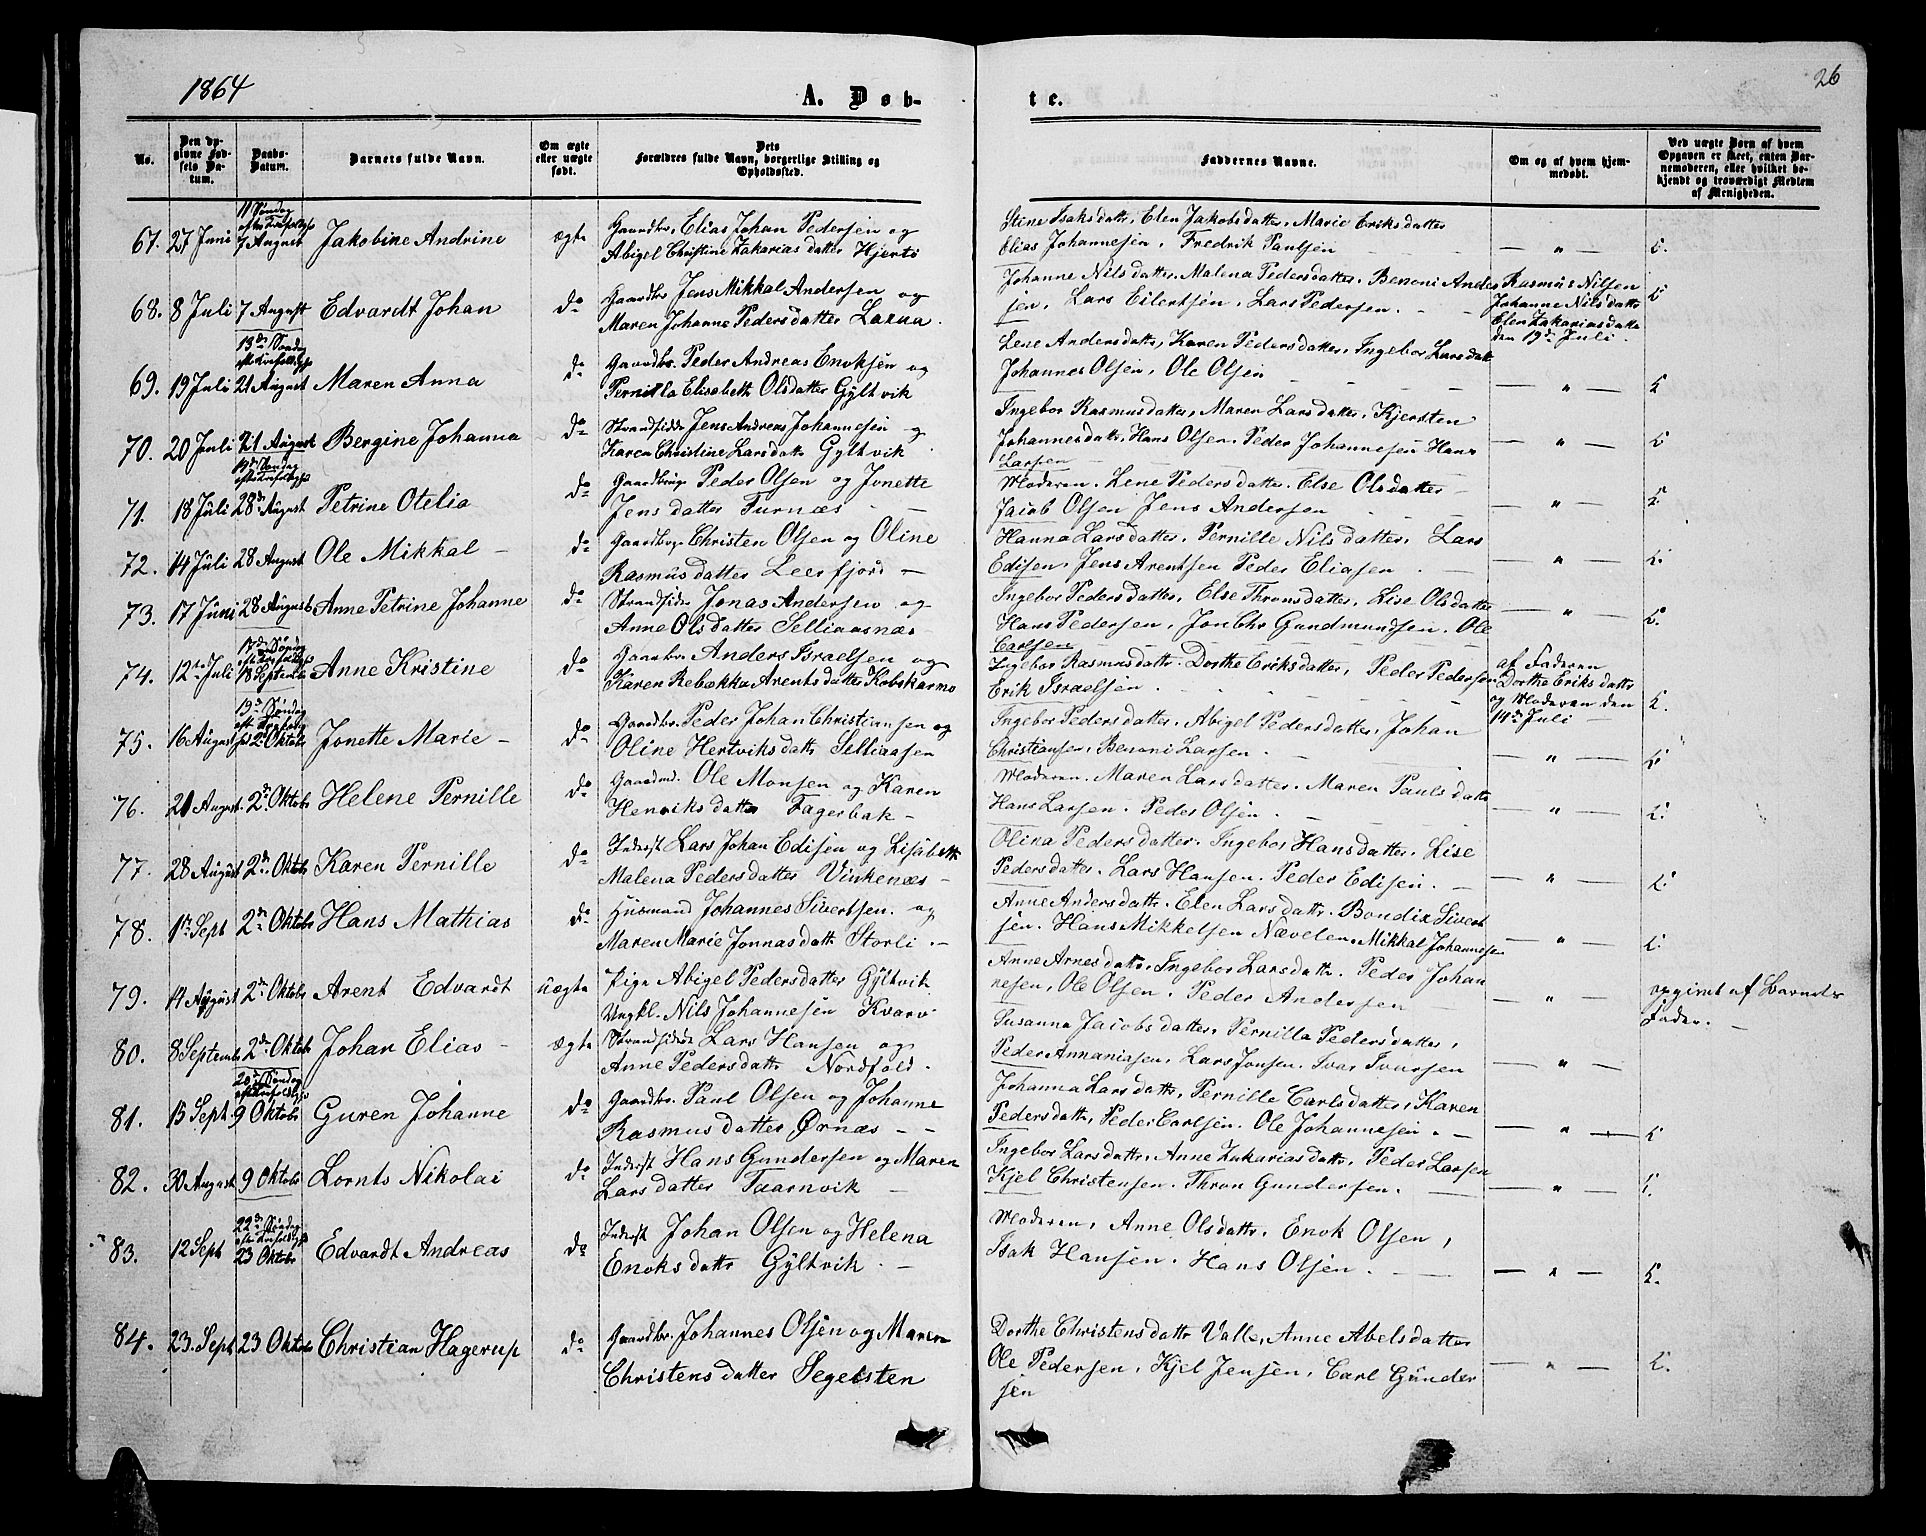 1864
A. Døb-
te.
26
No.
Den opgivne Fødsels Datum.
Daabs-Datum.
Barnets fulde Navn.
Om ægte eller uægte født.
Dets Forældres fulde Navn, borgerlige Stilling og Opholdssted.
Faddernes Navne.
Om og af hvem hjemmedøbt.
Ved uægte Børn af hvem Opgaven er skeet, enten Barnemoderen, eller hvilket bekjendt og troværdigt Medlem af Menigheden.
11 Søndag
67. 27 Juni 7 August Jakobine Andrine ægte Gaardbr. Elias Johan Pedersen og
Abigel Christine Zakariasdatter Hjertø
Stine Isaksdattr, Elen Jakobsdatter, Marie Eriksdatter
Elias Johannesen, Fredrik Paulsen — " —
68. 8 Juli 7 August Edvardt Johan do Gaardbr Jens Mikkal Andersen og
Maren Johanne Pedersdatter Laxaa.
Johanne Nilsdatter, Malena Pedersdatter, Benoni Ander
sen, Lars Eilertsen, Lars Pedersen.
Rasmus Nilsen
Johanne Nilsdattr
Elen Zakariasdattr
den 19de Juli.
13de Søndag
69. 19 Juli 21 August Maren Anna do Gaardbr. Peder Andreas Enoksen og
Pernilla Elisabeth Olsdatter Gyltvik
Lene Andersdattr, Karen Pedersdatter, Ingebor Larsdatt
Johannes Olsen, Ole Olsen — " —
70. 20 Juli 21 August Bergine Johanna do Strandsidder Jens Andreas Johannesen og
Karen Christine Larsdattr Gyltvik
Ingebor Rasmusdatter, Maren Larsdatter, Kjersten
Johannesdattr, Hans Olsen, Peder Johannesen Hans
Larsen — " —
14de Søndag
71. 18 Juli 28de August Petrine Otelia do Gaardbrug Peder Olsen og Jonette
Jensdatter Furnæs
Moderen. Lene Pedersdatter. Else Olsdatter
Jacob Olsen Jens Andersen — " —
72. 14 Juli 28 August Ole Mikkal do Gaardbrg. Christen Olsen og Oline
Rasmusdatter Leerfjord
Hanna Larsdatter, Pernille Nilsdatter, Lars
Edisen, Jens Arentsen Peder Eliasen — " —
73. 17 Juni 28 August Anne Petrine Johanne do Strandsidder Jonas Andersen og
Anne Olsdatter Selliaasnæs
Ingebor Pedersdatter, Else Thronsdatter, Lise Olsdatter
Hans Pedersen, Jon Chr Gundmundsen. Ole
Carlsen — " —
17de Søndag
74. 12te Juli 18 Septembr Anne Kristine do Gaardbr. Anders Israelsen og
Karen Rebækka Arentsdatter Kobskarmo
Ingebor Rasmusdattr Dorthe Eriksdatter, Peder Pedersen
Erik Israelsen.
af Faderen
Dorthe Eriksdattr
og Moderen den
14de Juli
19de Søndag
75. 16 August 2de Oktobr Jonette Marie do Gaardbr. Peder Johan Christiansen og
Oline Hertviksdattr Selliaasen
Ingebor Pedersdatter, Abigel Pedersdatter, Johan
Christiansen, Benoni Larsen — " —
76. 21 August 2de Oktobr Helene Pernille do Gaardmd. Ole Monsen og Karen
Henriksdatter Fagerbak
Moderen. Maren Larsdatter. Maren Paulsdattr
Hans Larsen. Peder Olsen. — " —
77. 28 August 2de Oktobr Karen Pernille do Inderst Lars Johan Edisen og Lisabeth
Malena Pedersdatter Vinkenæs
Olina Pedersdatter. Ingebor Hansdatter. Lise
Pedersdattr. Lars Hansen. Peder Edisen. — " —
78. 1ste Sept 2de Oktobr Hans Mathias do Husmand Johannes Sivertsen og
Maren Marie Jonnasdattr Storli.
Anne Andersdattr. Elen Larsdattr. Bondix Sivert
sen. Hans Mikkelsen Nævelen. Mikkal Johannesen — " —
79. 14 August 2de Oktobr Arent Edvardt uægte Pige Abigel Pedersdatter Gyltvik
Ungkl. Nils Johannesen Kvarv
Anne Arnesdattr. Ingebor Larsdattr. Peder Johan
nesen, Ole Olsen. Peder Andersen — " —
opgivet af Barnets
Fader.
80. 8 Septembr 2de Oktobr Johan Elias ægte Strandsidder Lars Hansen og
Anne Pedersdattr Nordfold.
Susanna Jacobsdatter, Pernilla Pedersdatter,
Peder Annaniasen, Lars Jonsen. Ivar Ivarsen — " —
20de Søndag
81. 15 Sept 9 Oktobr Guren Johanne do Gaardbr. Paul Olsen og Johanne
Rasmusdatter Ørnæs
Johanna Larsdattr, Pernille Carlsdatter, Karen
Pedersdattr, Peder Carlsen. Ole Johannesen. — " —
82. 30 August 9 Oktobr Lornts Nikolai do Inderst Hans Gundersen og Maren
Larsdatter Taarnvik
Ingebor Larsdattr. Anne Zakariasdattr. Peder Larsen
Kjel Christensen. Thron Gundersen. — " —
22de Søndag
83. 12 Sept 23 Oktobr Edvardt Andreas do Inderst Johan Olsen og Helena
Enoksdattr Gyltvik
Moderen, Anne Olsdattr. Enok Olsen,
Isak Hansen. Hans Olsen. — " —
84. 23. Sept 23 Oktobr Christian Hagerup do Gaardbr. Johannes Olsen og Maren
Christensdatter Segelsten
Dorthe Christensdattr Valle, Anne Abelsdatter
Ole Pedersen, Kjel Jensen, Carl Gunder
sen — " —